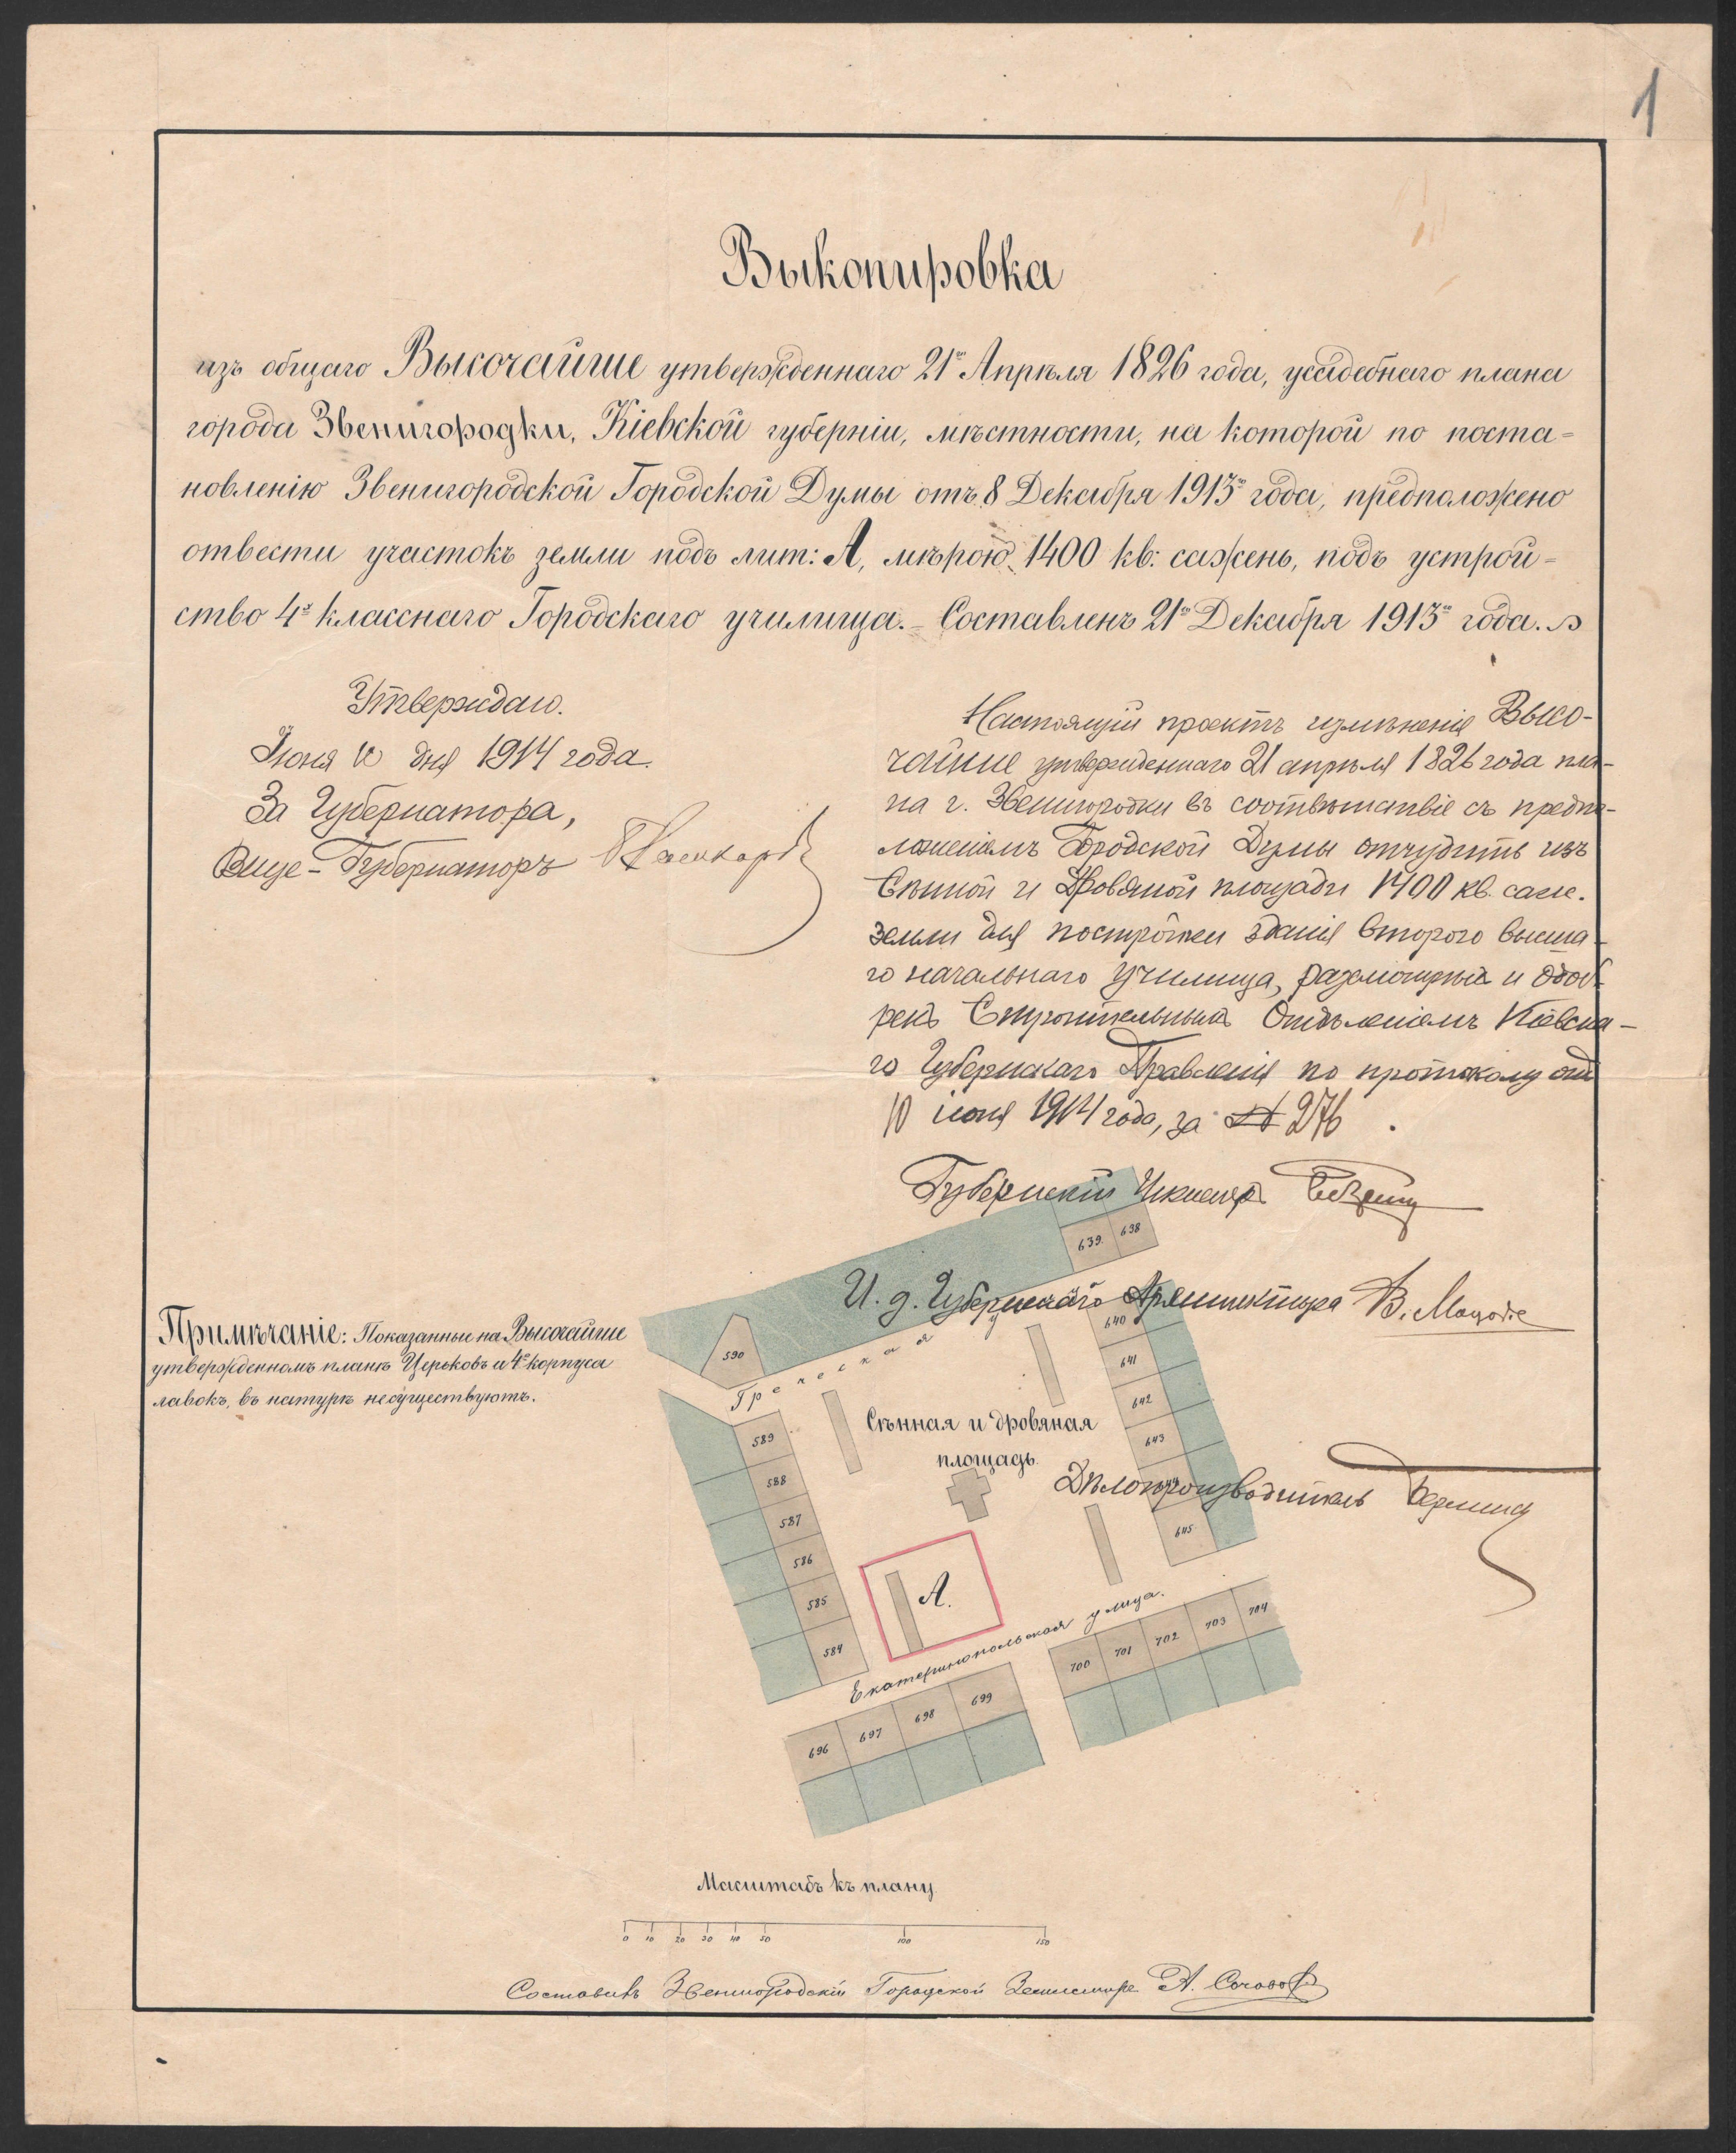 1
Выкопировка
изъ общаго Высочайше утвержденнаго 21го Апрѣля 1826 года, усадебнаго плана
города Звенигородки, Кіевской губерніи, мѣстности, на которой по поста=
новленію Звенигородской Городской Думы отъ 8 Декабря 1913го года, предположено
отвести участокъ земли подъ лит: А, мѣрою 1400 кв: сажень, подъ устрой=
ство 4х класснаго Городскаго училища. – Составленъ 21го Декабря 1913го года.
Утверждаю.
Іюня 10 дня 1914 года.
За Губернатора,
Вице-Губернаторъ
Настоящій проектъ измѣненія Высо-
чайше утвержденнаго 21 апрѣля 1826 года пла-
на г. Звенигородки въ соотвѣтствіе съ предпо-
ложеніемъ Городской Думы отчудить изъ
Сѣнной и Дровяной площади 1400 кв. саж.
земли для постройки зданія второго высша-
го начальнаго училища, разсмотрѣнъ и одоб-
ренъ Строительнымъ Отдѣленіемъ Кіевска-
го Губернскаго Правленія по протоколу отъ
10 іюня 1914 года, за № 276
Губернскій Инженеръ
639. 638
И. д. Губернскаго Архитектора В.
Примѣчаніе: Показанныи на Высочайше
утвержденномъ планѣ Церьковъ и 4е корпуса
лавокъ, въ натурѣ несуществуютъ.
590
Греческая у
640
641
642
643
645
589
588
587
586
585
584
Сѣнная и дровяная
площадь.
Дѣлопроизводитель
А.
Екатеринопольская улица.
700 701 702 703 704
696 697 698 699
Масштабъ къ плану
0 10 20 30 40 50 100 150
Составилъ Звенигородскій Городской Землемѣръ А.